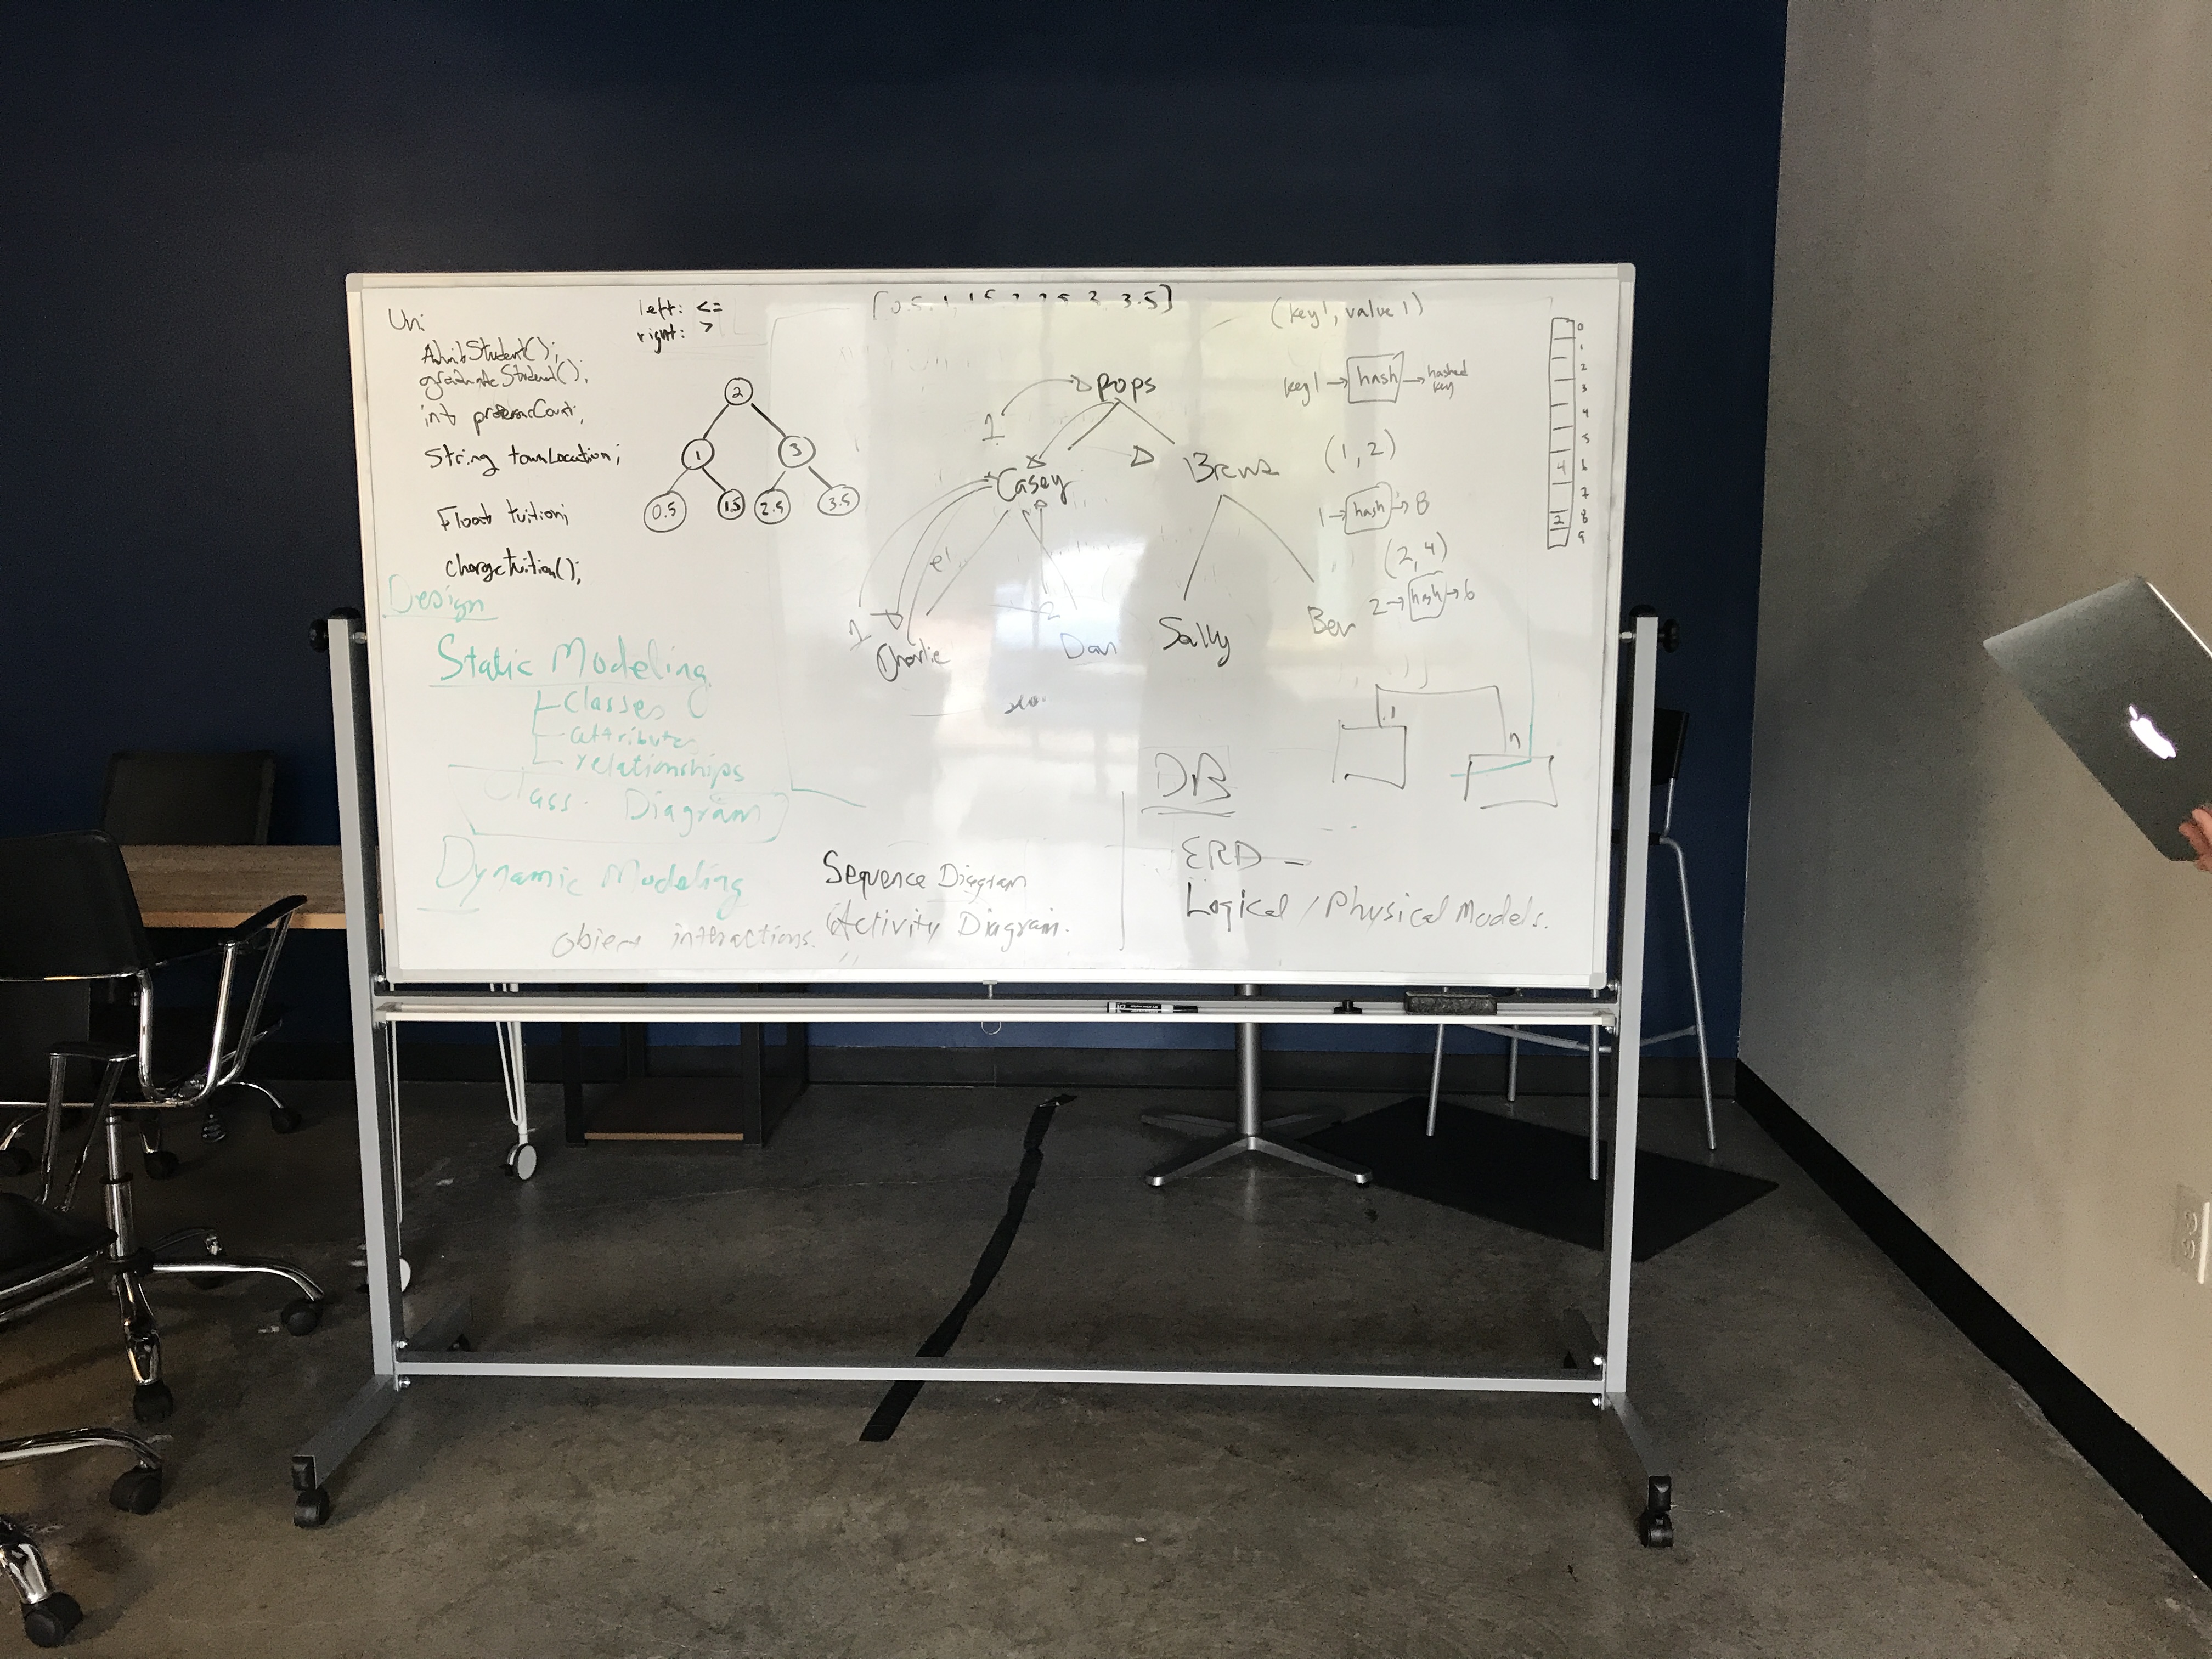 Uni
AdmitStudent();
graduateStudent();
int professorCount;
String townLocation;
Float tuition;
chargeTuition();
left: <=
right: >
2
1 3
0.5 1.5 2.5 3.5
[0.5, 1, 1.5 2 2.5 3 3.5]
1
Pops
Casey
e!
1
2
Charlie
Dan
Sally
Ben
(key1, value 1)
key1 → hash → hashed key
(1, 2)
1 → hash → 8
(2, 4)
2 → hash → 6
0
1
2
3
4
5
4 6
7
2 8
9
Design
Static Modeling
classes
attributes
relationships
Class Diagram
Dynamic Modeling
object interactions.
Sequence Diagram
Activity Diagram.
DB
ERD -
Logical / Physical Models.
1